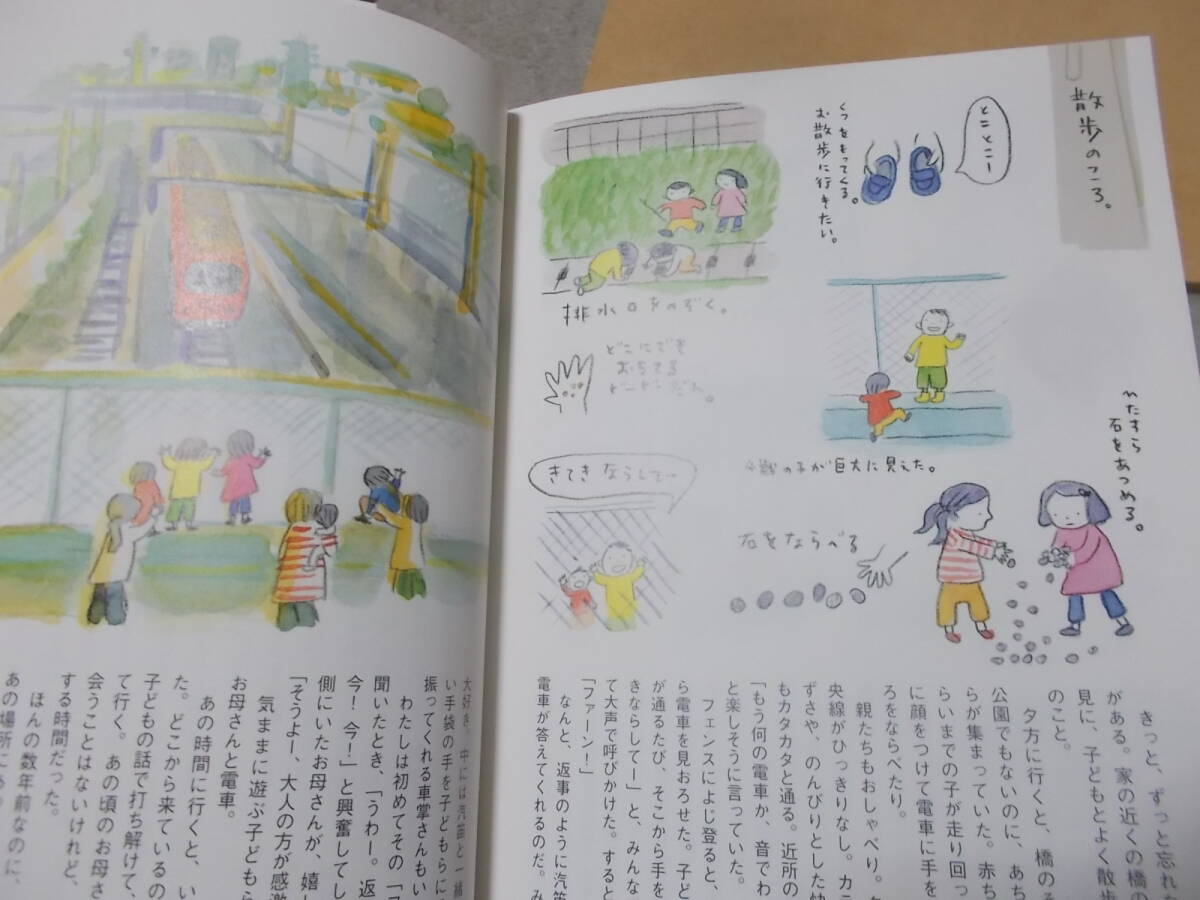 散歩のころ。
とことこー
くつをもってくる。
お散歩に行きたい。
排水口をのぞく。
どこにでも
おちてる
ひたすら
石をあつめる。
が巨大に見えた。
きてきならしてー
石をならべる
きっと、ずっと忘れ
がある。家の近くの橋の
見に、子どもとよく散歩
のこと。
夕方に行くと、橋の
公園でもないのに、あち
らが集まっていた。赤ち
らいまでの子が走り回っ
に顔をつけて電車に手を
ろをならべたり。
親たちもおしゃべり。
央線がひっきりなし。カ
ずさや、のんびりとした快
もカタカタと通る。近所の
「もう何の電車か、音でわ
と楽しそうに言っていた。
フェンスによじ登ると、
ら電車を見おろせた。子ど
が通るたび、そこから手を
きならしてー」と、みんな
て大声で呼びかけた。すると
「ファーン！」
なんと、返事のように汽笛
電車が答えてくれるのだ。み
大好き。中には汽笛と一緒
い手袋の手を子どもらに
振ってくれる車掌さんもい
わたしは初めてその「フ
聞いたとき、「うわー。返
今！今！」と興奮してし
側にいたお母さんが、嬉し
「そうよー、大人の方が感激
気ままに遊ぶ子どもら
お母さんと電車。
あの時間に行くと、い
た。どこから来ているの
子どもの話で打ち解けて、
て行く。あの頃のお母さ
会うことはないけれど、
する時間だった。
ほんの数年前なのに、
あの場所に